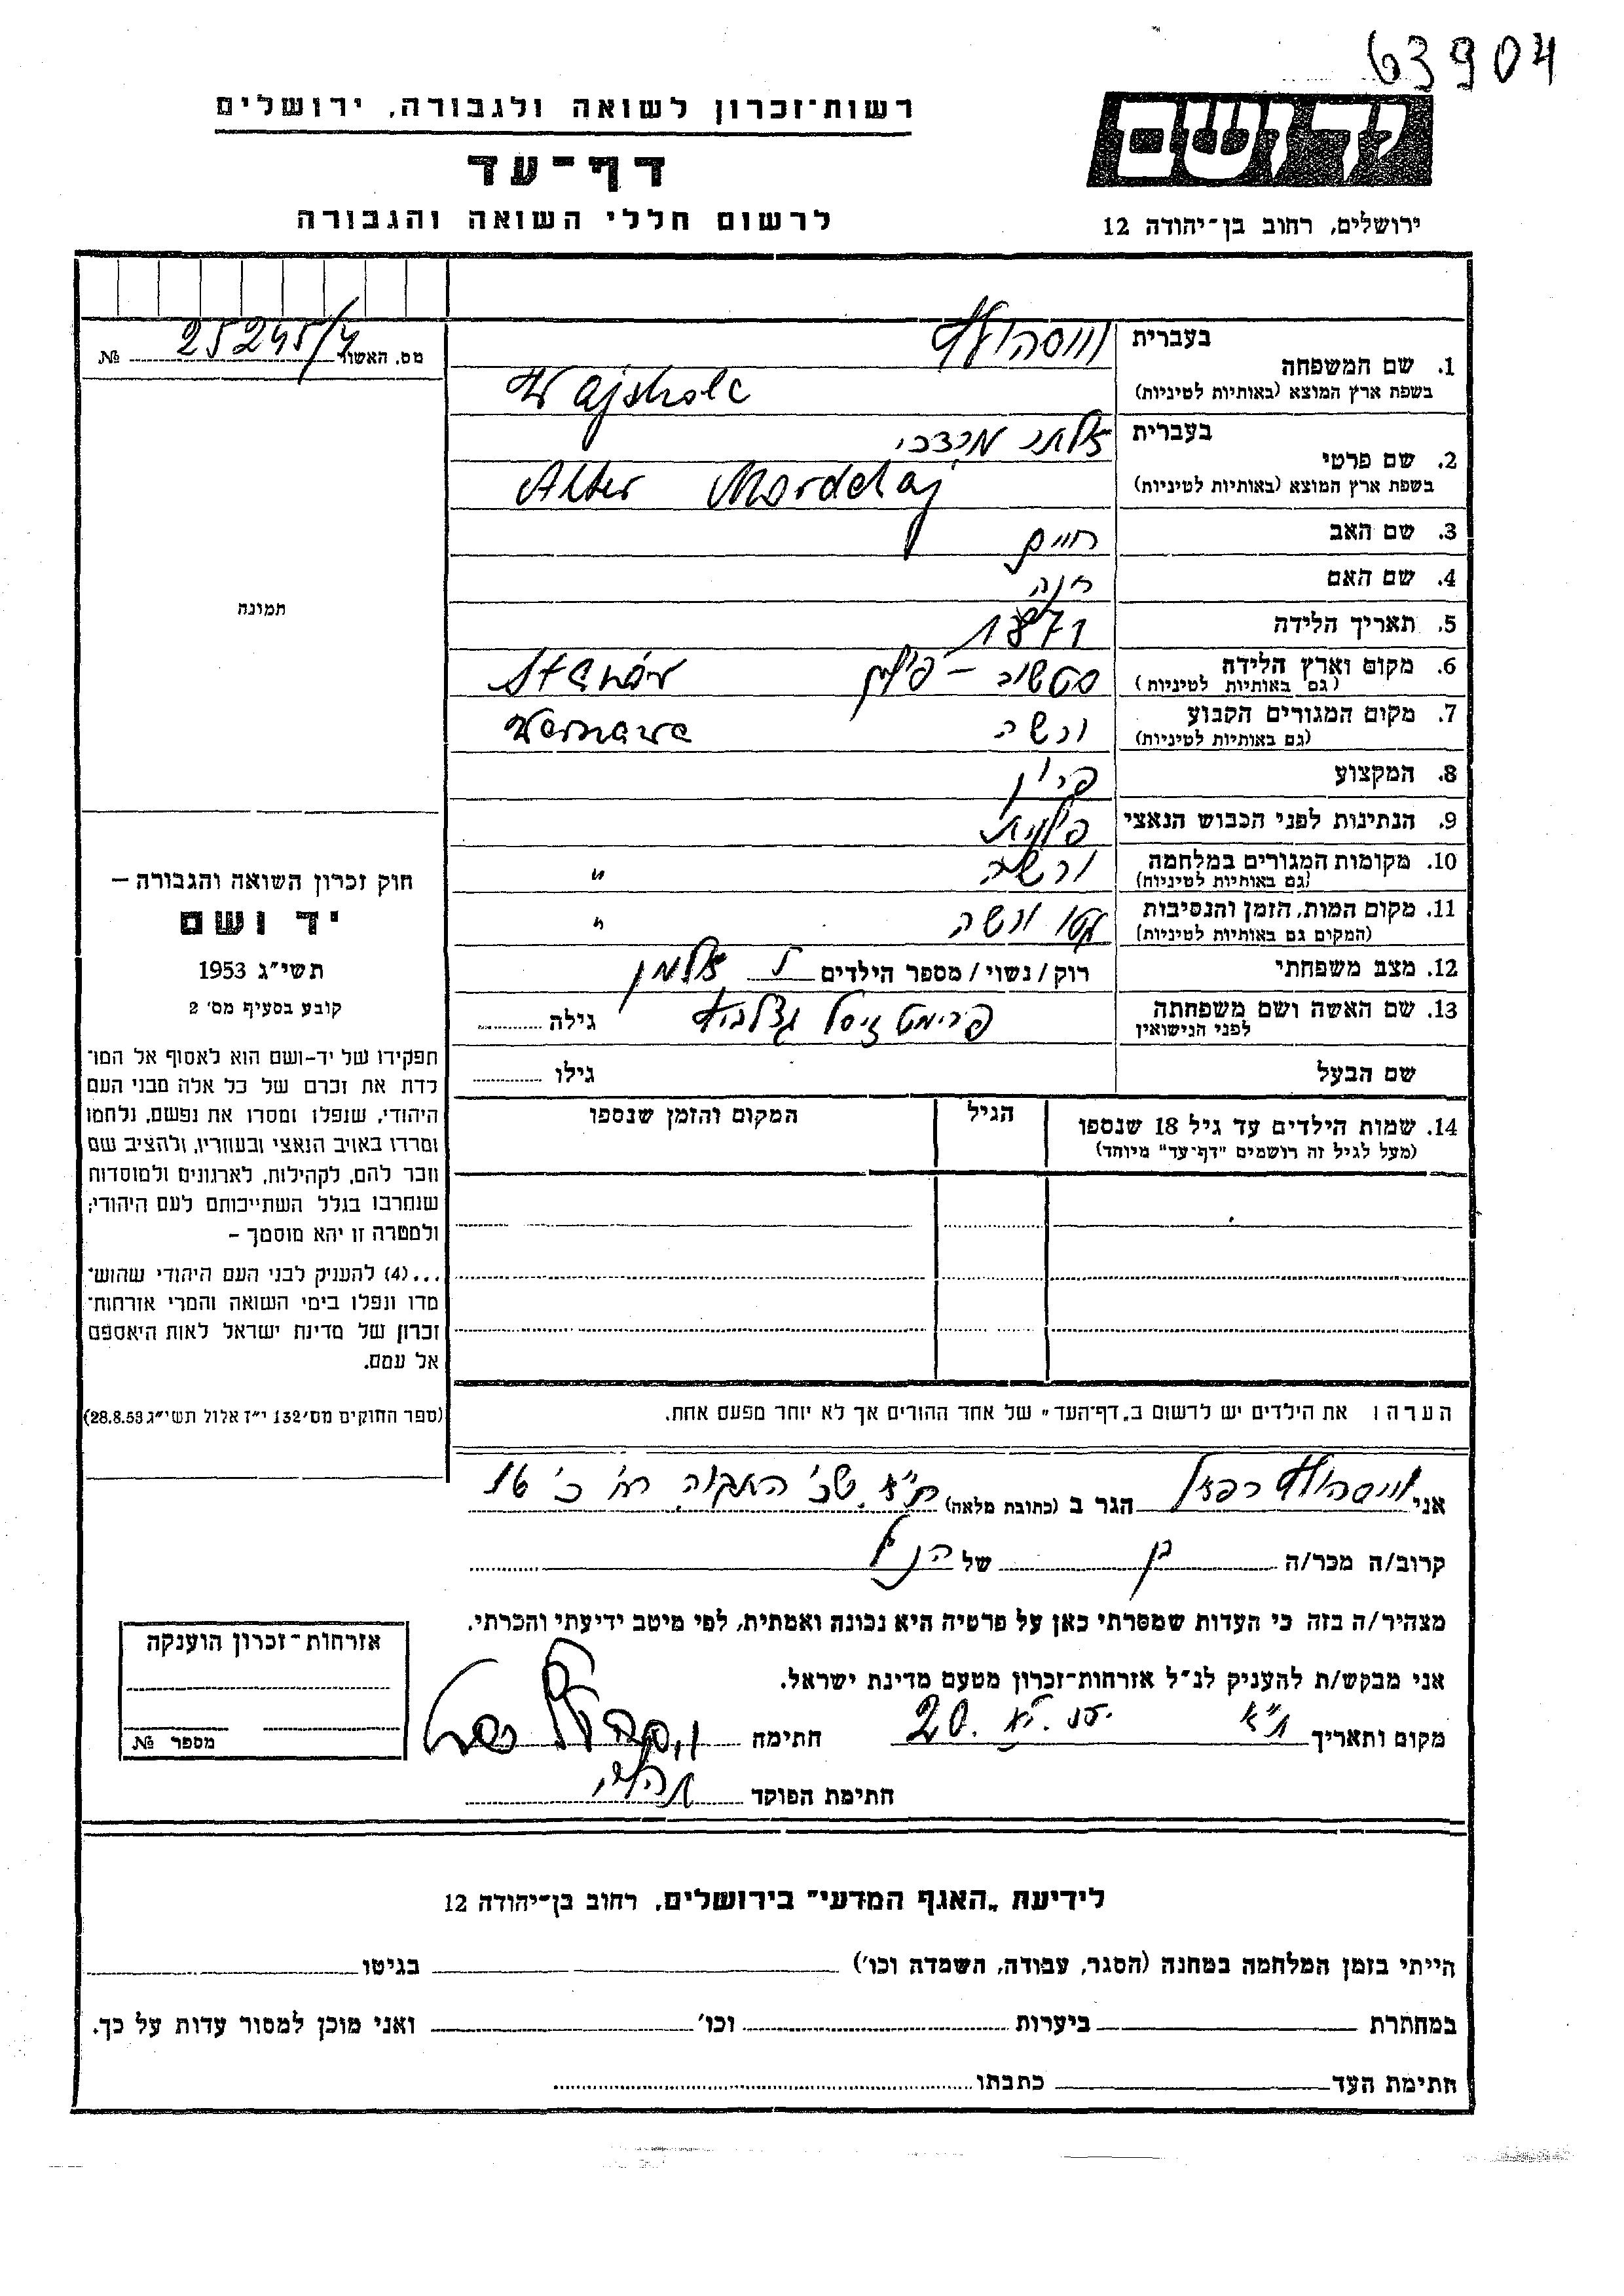 63904
ידושם
ירושלים, רחוב בן־יהודה 12
רשות־זכרון לשואה ולגבורה, ירושלים
דף־עד
לרשום חללי השואה והגבורה
מס. האשור 25245/4 №
תמונה
חוק זכרון השואה והגבורה —
יד ושם
תשי״ג 1953
קובע בסעיף מס׳ 2
תפקידו של יד-ושם הוא לאסוף אל המו־
לדת את זכרם של כל אלה מבני העם
היהודי, שנפלו ומסרו את נפשם, נלחמו
ומרדו באויב הנאצי ובעוזריו, ולהציב שם
וזכר להם, לקהילות, לארגונים ולמוסדות
שנחרבו בגלל השתייכותם לעם היהודי;
ולמטרה זו יהא מוסמך —
...(4) להעניק לבני העם היהודי שהוש־
מדו ונפלו בימי השואה והמרי אזרחות־
זכרון של מדינת ישראל לאות היאספם
אל עמם.
(ספר החוקים מס׳ 132 י״ז אלול תשי״ג 28.8.53)
בעברית
1. שם המשפחה
בשפת ארץ המוצא (באותיות לטיניות) Wajshole
בעברית אלתר מרדכי
2. שם פרטי
בשפת ארץ המוצא (באותיות לטיניות) Alter Mordchaj
3. שם האב חיים
4. שם האם חנה
5. תאריך הלידה 1871
6. מקום וארץ הלידה פולין
(גם באותיות לטיניות)
7. מקום המגורים הקבוע ורשה
(גם באותיות לטיניות)
8. המקצוע
9. הנתינות לפני הכבוש הנאצי פולנית
10. מקומות המגורים במלחמה ורשה "
(גם באותיות לטיניות)
11. מקום המות, הזמן והנסיבות גטו ורשה "
(המקום גם באותיות לטיניות)
12. מצב משפחתי רוק/נשוי/מספר הילדים אלמן
13. שם האשה ושם משפחתה
לפני הנישואין גילה
שם הבעל גילו
14. שמות הילדים עד גיל 18 שנספו הגיל המקום והזמן שנספו
(מעל לגיל זה רושמים "דף-עד" מיוחד)
הערה: את הילדים יש לרשום ב„דף־העד״ של אחד ההורים אך לא יותר מפעם אחת.
אני רפאל הגר ב (כתובת מלאה) ת״א 16
קרוב/ה מכר/ה בן של הנ״ל
מצהיר/ה בזה כי העדות שמסרתי כאן על פרטיה היא נכונה ואמתית, לפי מיטב ידיעתי והכרתי.
אני מבקש/ת להעניק לנ״ל אזרחות־זכרון מטעם מדינת ישראל.
מקום ותאריך ת״א חתימה
חתימת הפוקד
אזרחות־זכרון הוענקה
מספר №
לידיעת „האגף המדעי״ בירושלים, רחוב בן־יהודה 12
הייתי בזמן המלחמה במחנה (הסגר, עבודה, השמדה וכו׳) בגיטו
במחתרת ביערות וכו׳ ואני מוכן למסור עדות על כך.
חתימת העד כתבתו